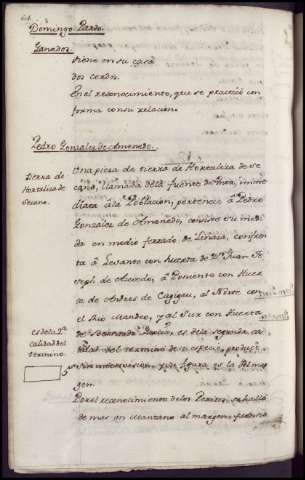 Domingo Pardo.
Ganados
tiene en su casa
dos cerdos.
En el reconocimiento, que se practicó con
forma con su relacion.
Pedro Gonzalez de Amenedo.
tierra de
Hortaliza de
Secano.
Una pieza de tierra de Hortaliza de se
cano, llamada dela fuente de , inme
diata á la Poblacion, pertenece á Pedro
Gonzalez de Amenedo, consiste su medi
da en medio ferrado de Linaza, confron
ta á Levante con huerta de Dn. Juan Jo
seph de Acuedo, á Poniente con Huer
ta de Andres de Cagigeu, al Norte con
el Rio Mandeo, y al Sur con Huerta
de , es dela segunda ca
lidad del termino de su especie, produce
sin intermision, y su figura es la del mar
gen.
es de la 2a.
calidad del
termino.
Por el reconocimiento delos Peritos se halló
de mas un Manzano al margen